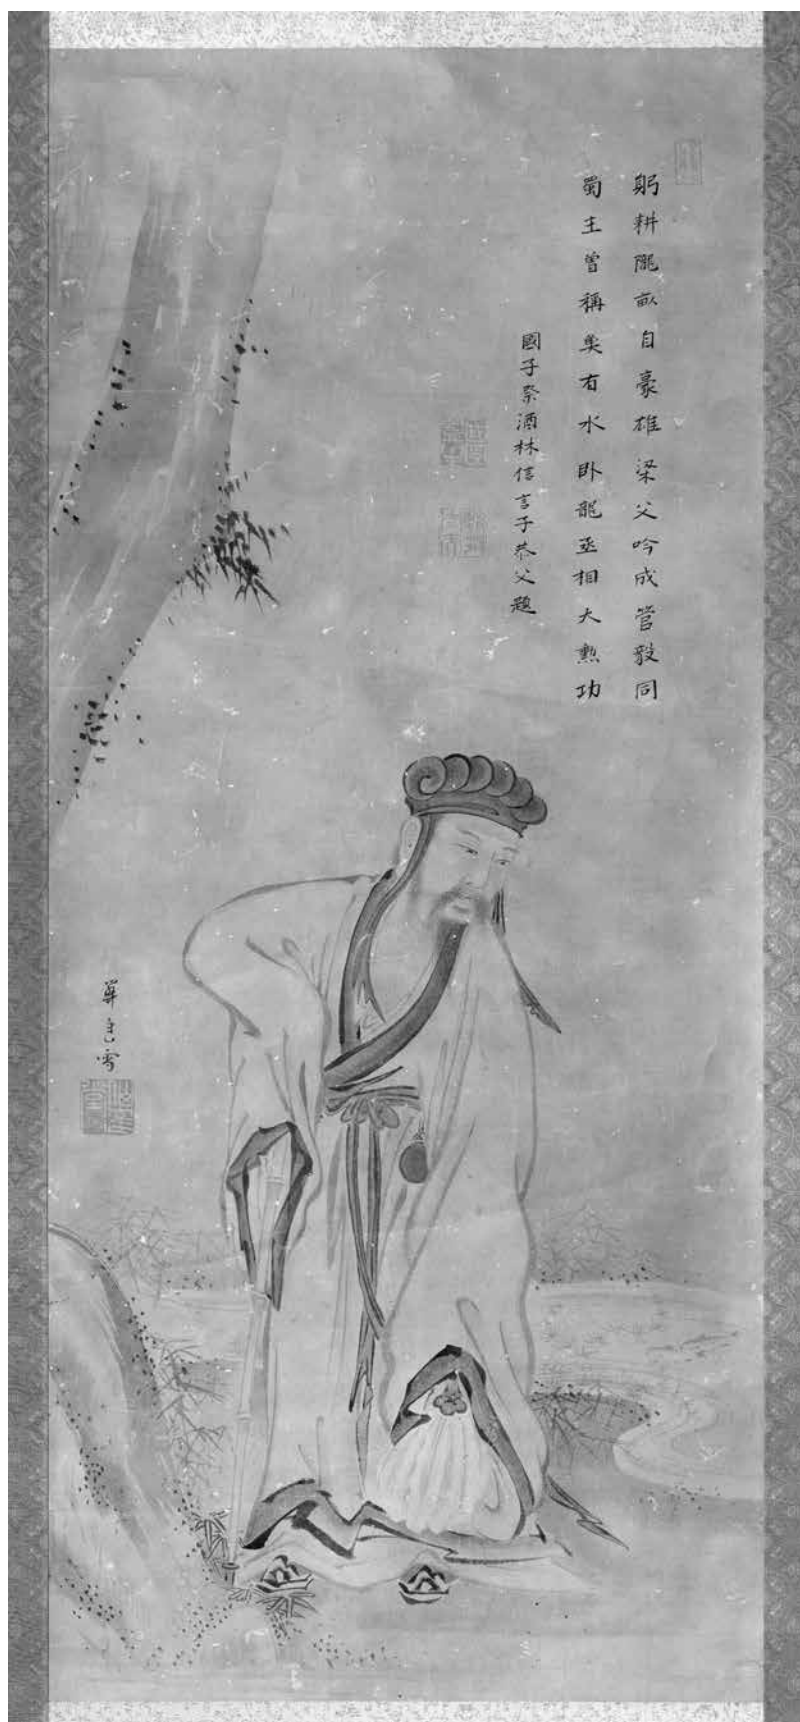 躬耕隴畝自豪雄梁父吟成管毅同
蜀主曽稱魚有水卧龍丞相大勲功
國子祭酒林信言子恭父題
雪